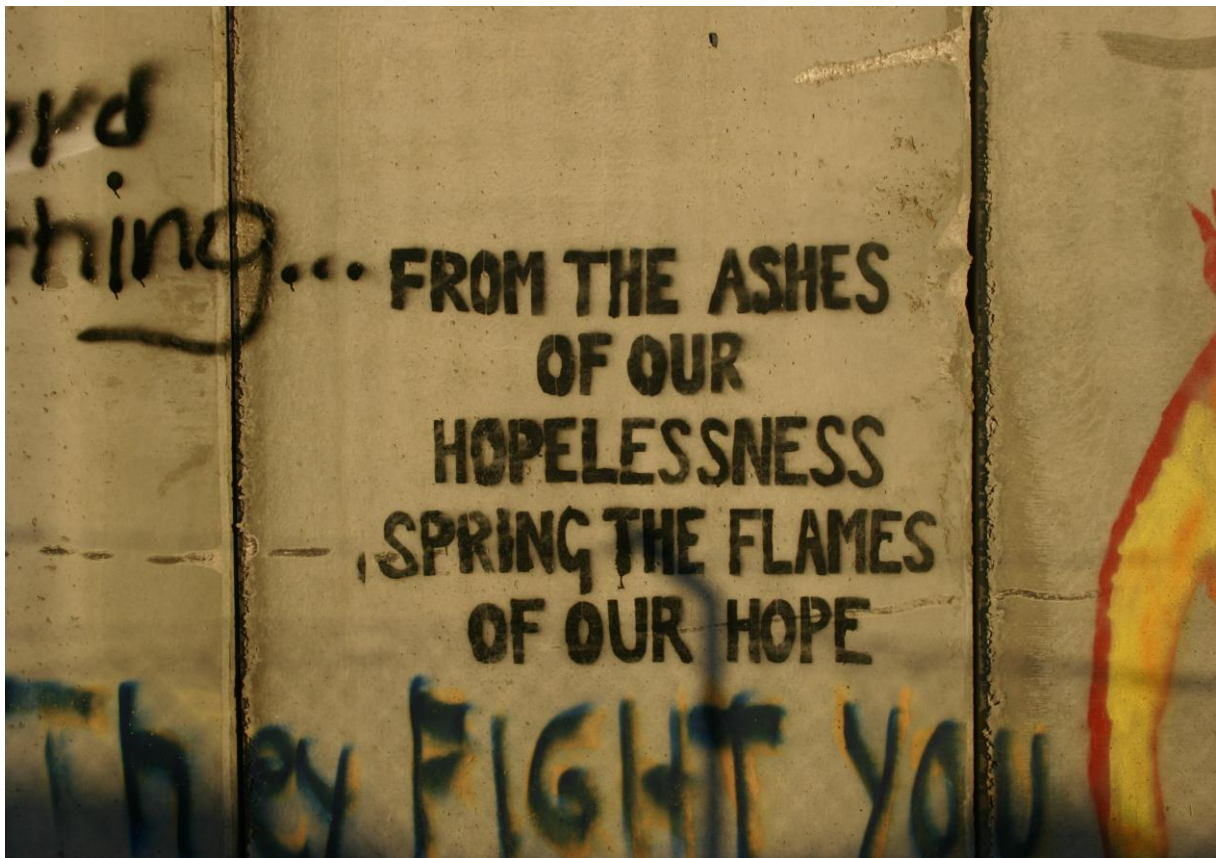 thing...
FROM THE ASHES
OF OUR
HOPELESSNESS
SPRING THE FLAMES
OF OUR HOPE
They FIGHT YOU